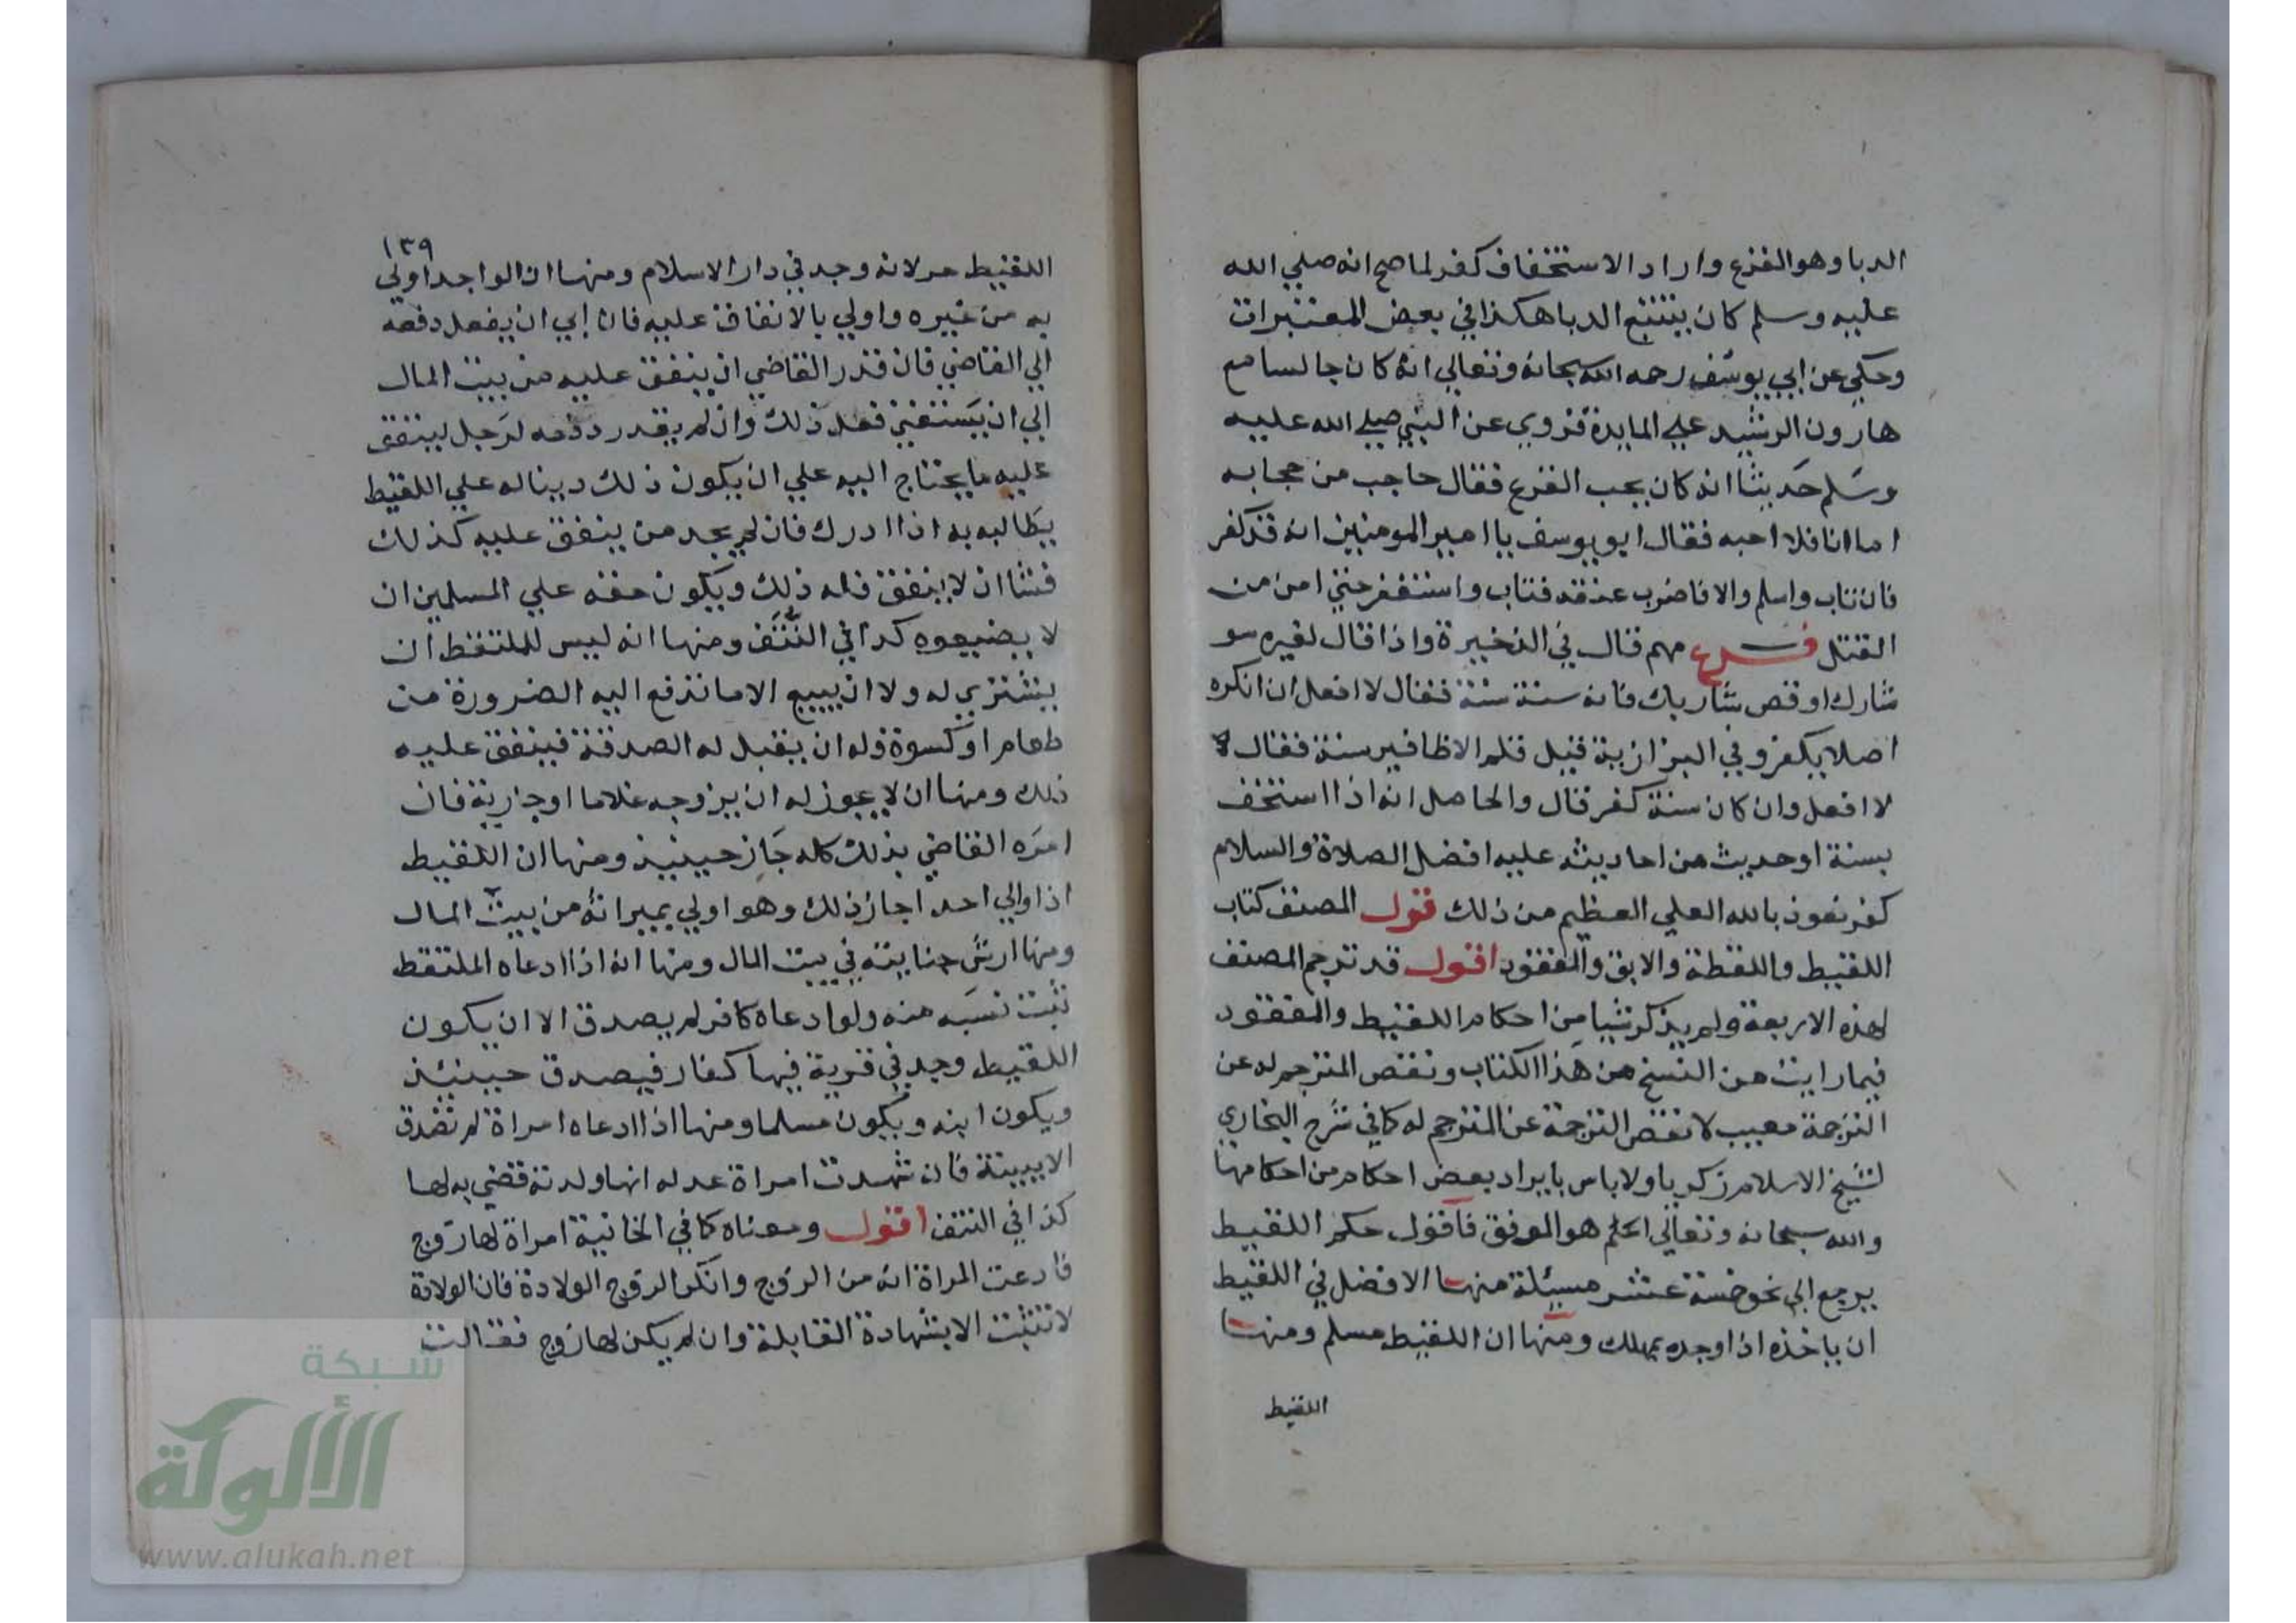 الدبا وهو القرع واراد الاستخفاف كفر لما صح انه صلي الله
عليه وسلم كان يتتبع الدبا هكذا في بعض المعتبرات
وحكي عن ابي يوسف رحمه الله سبحانه وتعالي انه كان جالسا مع
هارون الرشيد علي المايدة فروي عن النبي صلي الله عليه
وسلم حديثا انه كان يحب القرع فقال حاجب من حجابه
اما انا فلا احبه فقال ابو يوسف يا امير المومنين انه قد كفر
فان تاب واسلم والا فاضرب عنقه فتاب واستغفر حتي امن من
القتل فرع مهم قال في الذخيرة واذا قال لغيره سو
شارك او قص شاربك فانه سنة فقال لا افعل ان انكره
اصلا يكفر وفي البزازية قيل قلم الاظافير سنة فقال لا
لا افعل وان كان سنة كفر قال والحاصل انه اذا استخف
بسنة او حديث من احاديثه عليه افضل الصلاة والسلام
كفر نعوذ بالله العلي العظيم من ذلك قول المصنف كتاب
اللقيط واللقطة والابق والمفقود اقول قد ترجم المصنف
لهذه الاربعة ولم يذكر شيا من احكام اللقيط والمفقود
فيما رايت من النسخ من هذا الكتاب ونقص المترجم له عن
الترجمة معيب لا نقص الترجمة عن المترجم له كما في شرح البخاري
لشيخ الاسلام زكريا ولا باس بايراد بعض احكام من احكامها
والله سبحانه وتعالي اعلم هو الموفق فاقول حكم اللقيط
يرجع الي نحو خمسة عشر مسيلة منها الافضل في اللقيط
ان ياخذه اذا وجده بمهلك ومنها ان اللقيط مسلم ومنها
اللقيط
١٣٩
اللقيط حر لانه وجد في دار الاسلام ومنها ان الواجد اولي
به من غيره واولي بالانفاق عليه فان ابي ان يفعل دفعه
الي القاضي فان قدر القاضي ان ينفق عليه من بيت المال
الي ان يستغني فعل ذلك وان لم يقدر دفعه لرجل لينفق
عليه ما يحتاج اليه علي ان يكون ذلك دينا له علي اللقيط
يطالبه به اذا ادرك فان لم يجد من ينفق عليه كذلك
فشا ان لا ينفق فله ذلك ويكون حقه علي المسلمين ان
لا يضيعوه كذا في النتف ومنها انه ليس للملتقط ان
يشتري له ولا ان يبيع الا ما تدفع اليه الضرورة من
طعام او كسوة وله ان يقبل له الصدقة فينفق عليه
ذلك ومنها ان لا يجوز له ان يزوجه غلاما او جارية فان
امره القاضي بذلك كله جاز حينيذ ومنها ان اللقيط
اذا والي احدا جاز ذلك وهو اولي بميراثه من بيت المال
ومنها ارش جنايته في بيت المال ومنها انه اذا ادعاه الملتقط
ثبت نسبه منه ولو ادعاه كافر لم يصدق الا ان يكون
اللقيط وجد في قرية فيها كفار فيصدق حينئذ
ويكون ابنه ويكون مسلما ومنها اذا ادعاه امراة لم تصدق
الا ببينة فان شهدت امراة عدله انها ولدته قضي به لها
كذا في النتف اقول ومعناه كما في الخانية امراة لها زوج
فادعت المراة انه من الزوج وانكر الزوج الولادة فان الولادة
لا تثبت الا بشهادة القابلة وان لم يكن لها زوج فقالت
شبكة
الألوكة
www.alukah.net